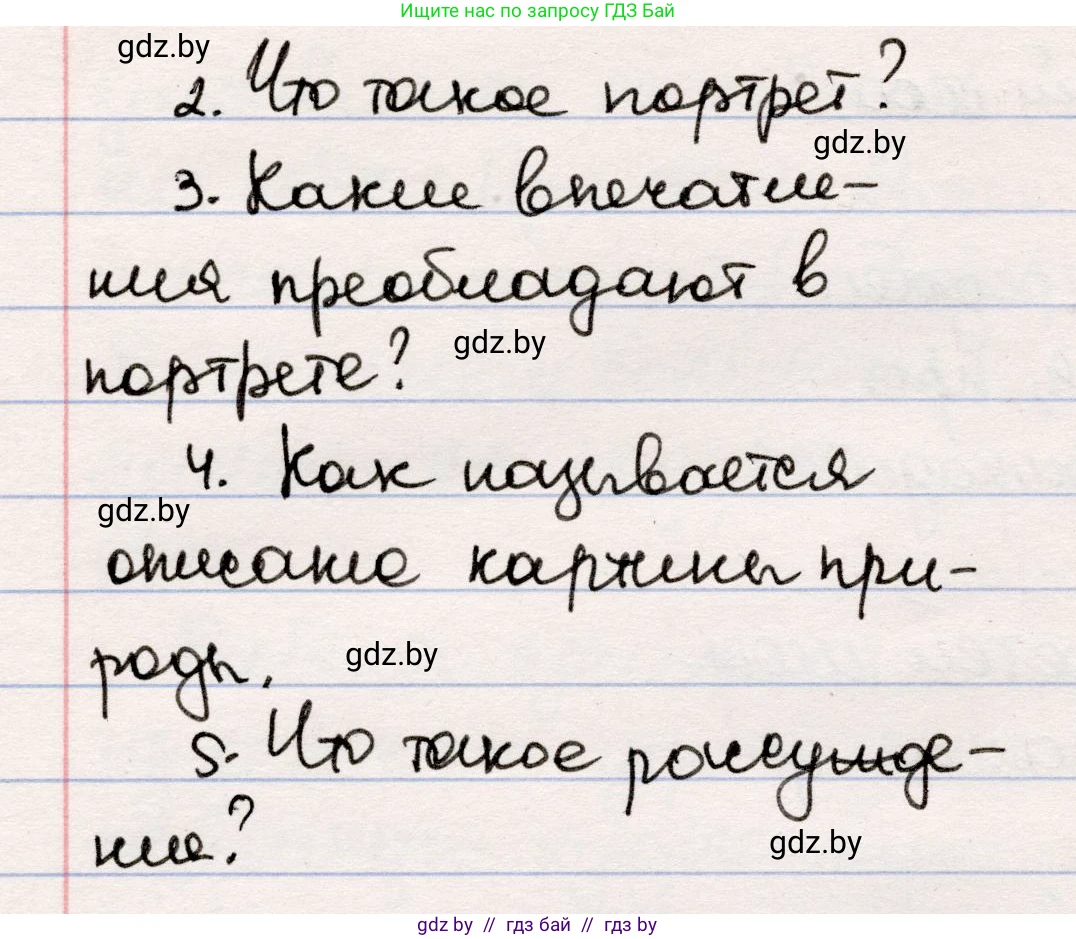 Ищите нас по запросу ГДЗ Бай
gdz.by
2. Что такое портрет?
gdz.by
3. Какие впечатле-
ния преобладают в
портрете?
gdz.by
4. Как называется
gdz.by
описание картины при-
роды.
gdz.by
5. Что такое рассужде-
ние?
gdz.by
gdz.by // гдз бай // гдз by